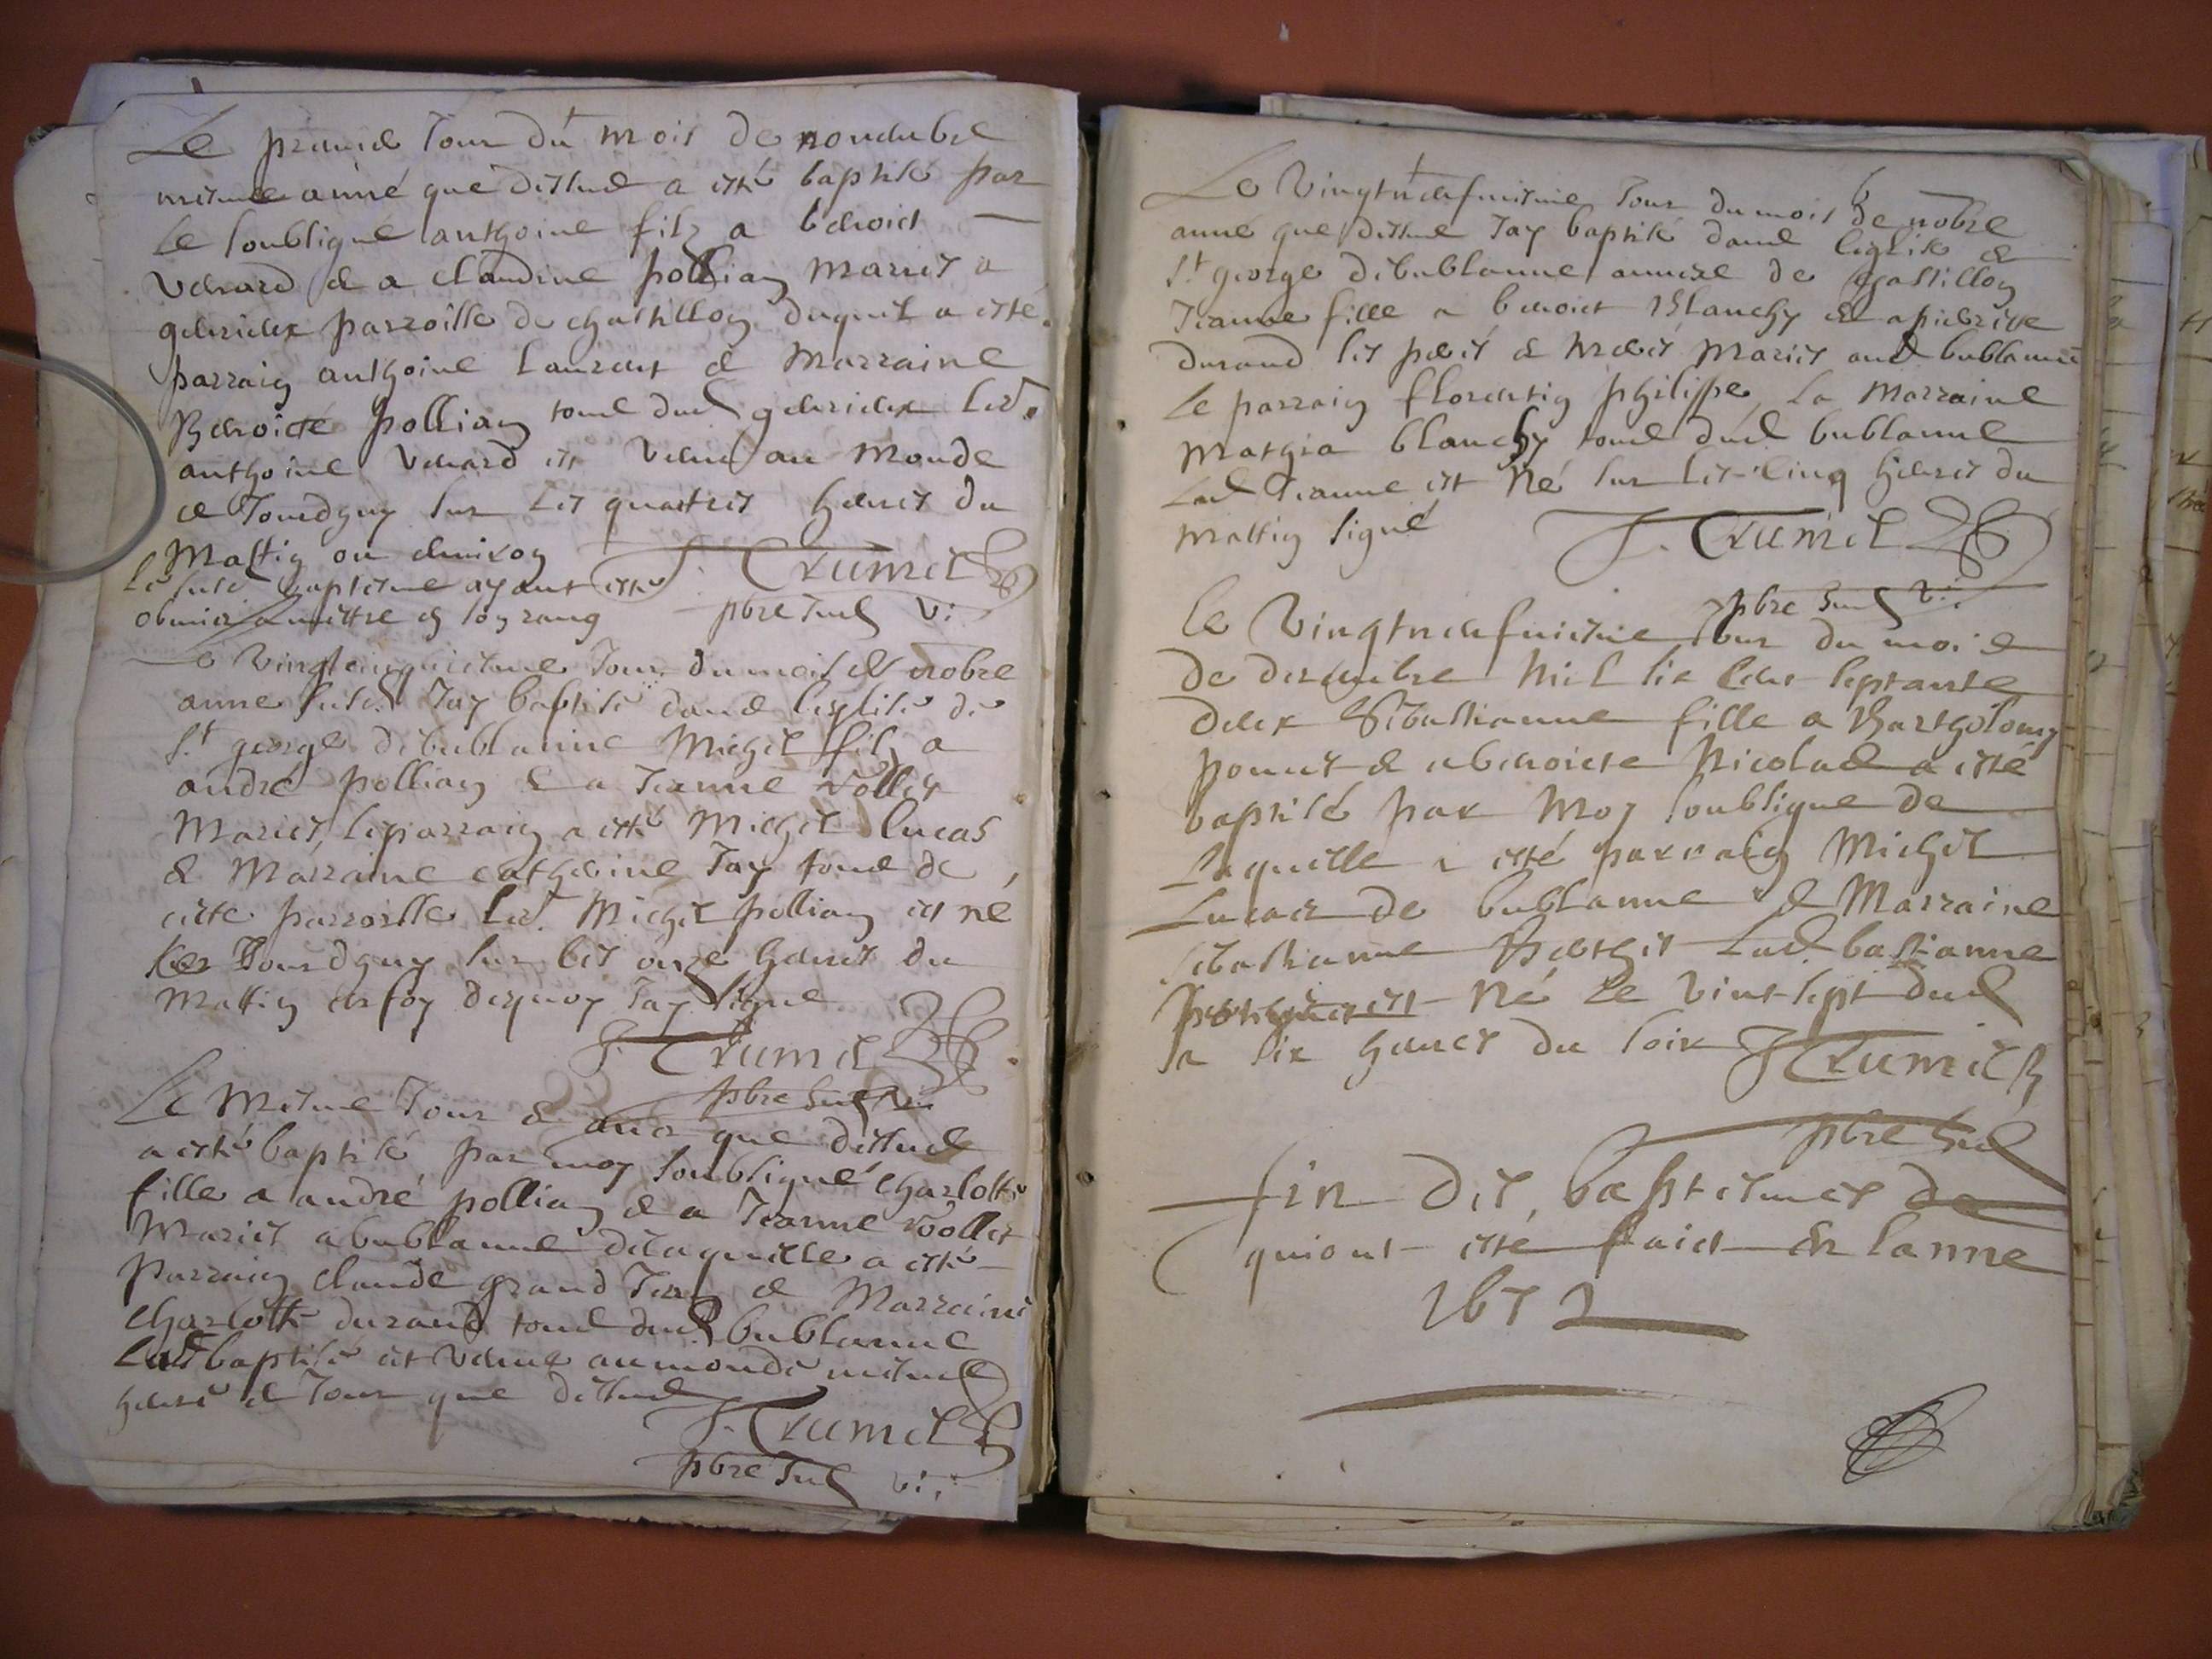 Le premie Jour du mois de novembre
mesme anné que dessus a esté baptisé par
Le soubsigné anthoine filz a benoict
Venard & a claudine pollian mariés a
parroisse de chastillon duquel a esté
parrain anthoine Laurent & Marraine
Benoicte pollian tous dud Led.
anthoine Venard est Venu au Monde
ce Jourdhuy sur Les quattres heures du
Mattin ou environ J. Crumel
Le susd baptesme ayant esté
obmis a mettre en son rang pbre Sud vi:
Le Vingtcinquiesme Jour du mois de nobre
anne susd. Jay baptisé dans lesglise de
St george debublanne Michel filz a
andré pollian & a Jeanne rollet
Mariés, le parrain a esté Michel lucas
& Marraine catherine Jay tous de
ceste parroisse Led. Michel pollian est né
Jourdhuy sur les onze heures du
Mattin en foy dequoy Jay signe
J. Crumel
pbre Sud vi:
Le Mesme Jour & que dessus
a esté baptisé par moy soubsigné charlotte
fille a andré pollian & a Jeanne roollet
Mariés a bublanne delaquelle a esté
Parrain claude grand Jean & Marraine
charlotte durand tous dud bublanne
Lad baptisé est Venue au monde mesme
heure & Jour que dessus
J. Crumel
pbre Sud vi:
Le Vingtneufviesme Jour du mois de nobre
anné que dessus Jay baptisé dans leglise de
St george debublanne annexe de chastillon
Jeanne fille a benoict Blanchy & a pierrette
durand les pere & mere mariés aud bublanne
Le parrain florentin philippe La Marraine
Mathia blanchy tous dud bublanne
Lad Jeanne est Né sur les cinq heures du
mattin signé J. Crumel
pbre Sud vi:
Le Vingtneufviesme Jour du mois
de desembre Mil six cens septante
deux Sebastianne fille a Bartholomy
& a benoicte Nicolas a esté
baptisé par Moy soubsigne de
Laquelle a esté parrain Michel
Lucas de bublanne & Marraine
sebastianne Lad bastianne
est Né Le Vint sept dud
a six heures du soir J Crumel
pbre Sud
fin Des baptesmes
qui ont esté faict En Lanne
1672